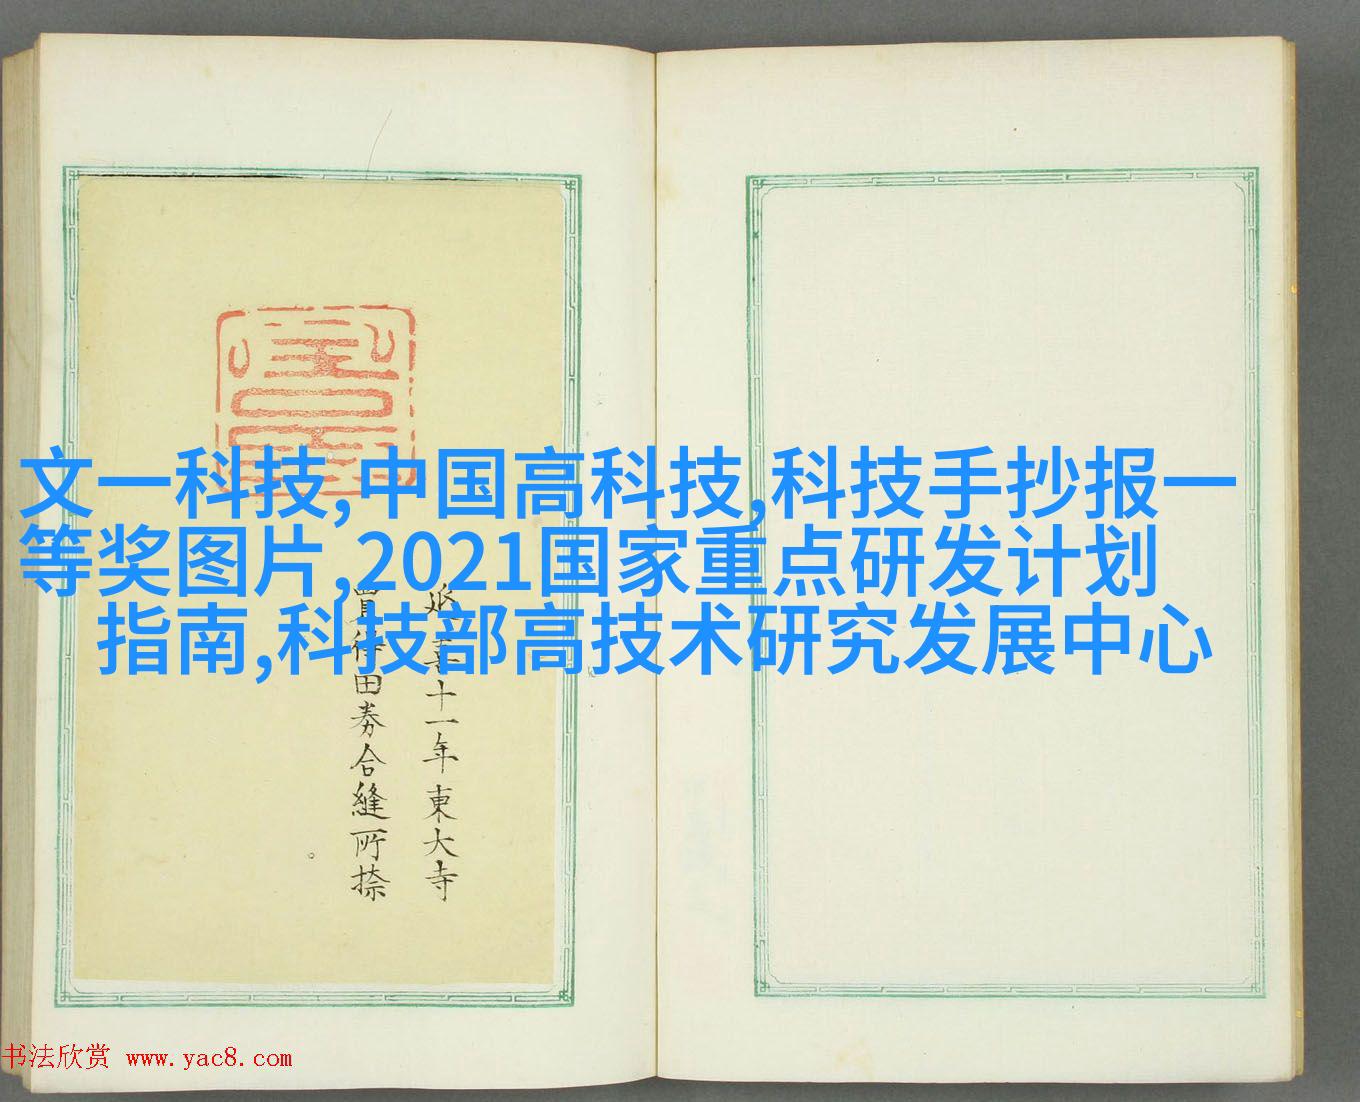 文一科技,中国高科技,科技手抄报一
等奖图片,2021国家重点研发计划
指南,科技部高技术研究发展中心
十一年東大寺
田券合縫所捺
书法欣赏 www.yac8.com